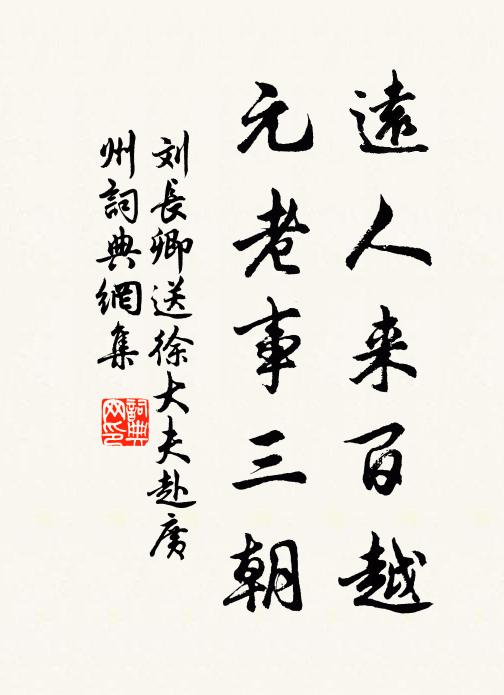 遠人来百越
元老事三朝
刘長卿送徐大夫赴廣
州詞典網集
詞典
网印